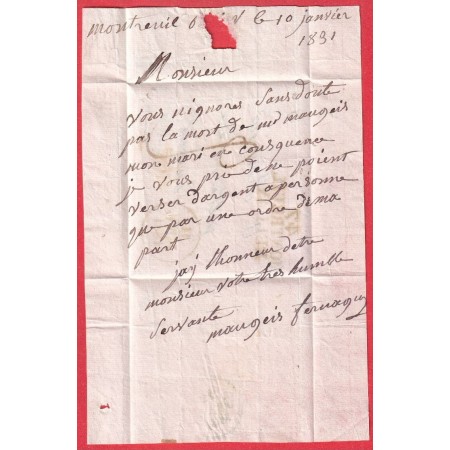 montreuil le 10 janvier
1831
Monsieur
vous nignores sans doute
pas la mort de md maugeis
mon mari en consquence
je vous prie de ne point
verser dargent a personne
que par une ordre de ma
part
jaÿ lhonneur detre
monsieur votre tres humble
servante
maugeis